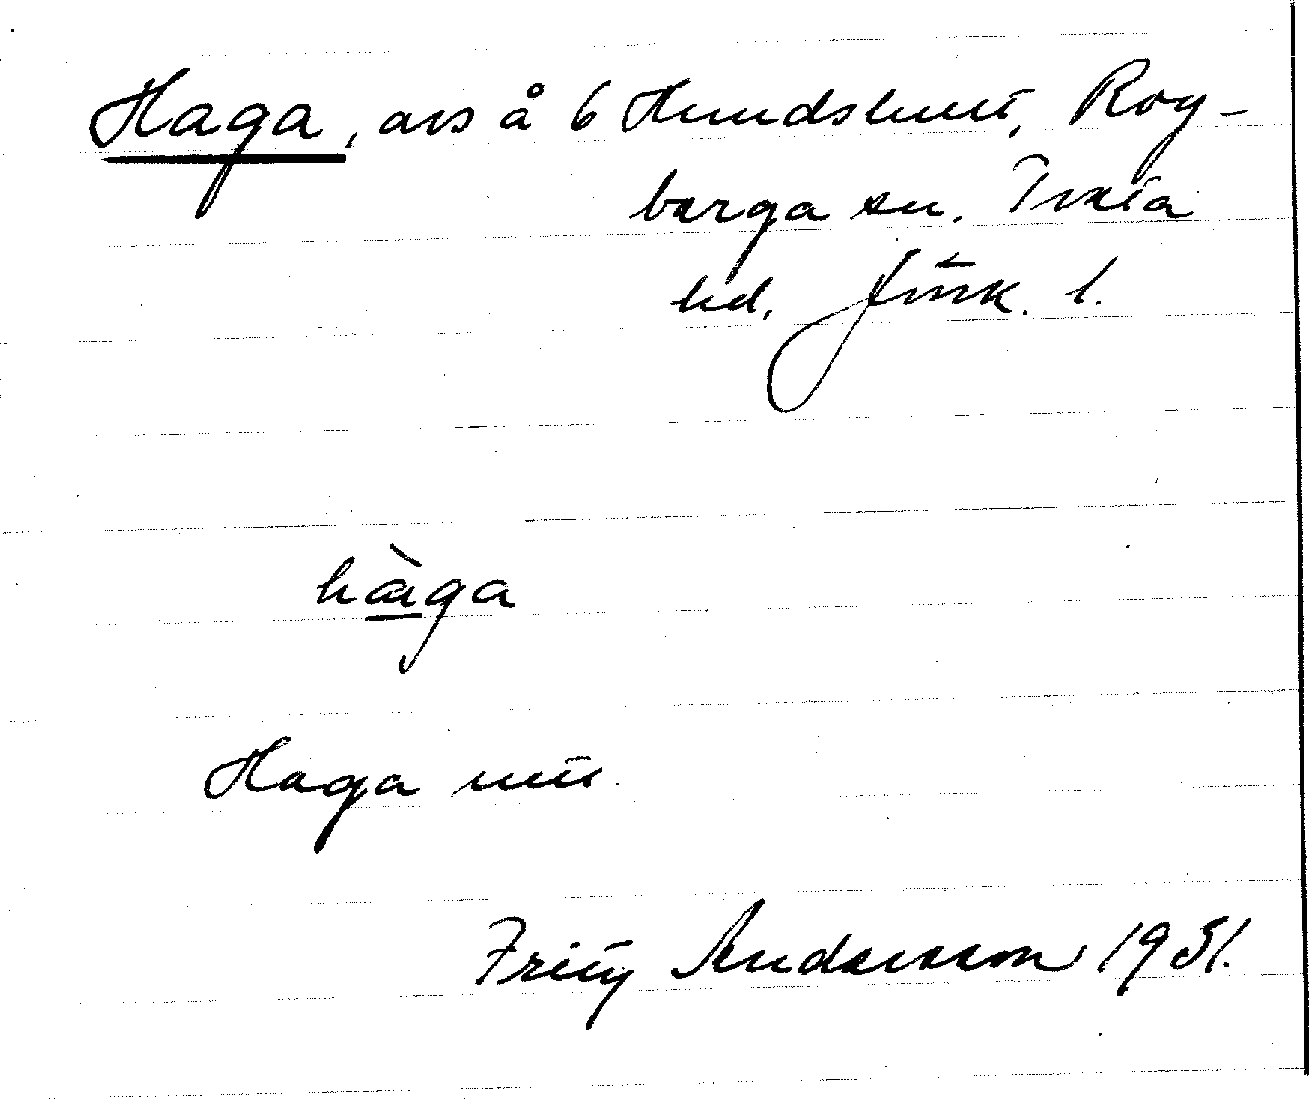 Haga, avs å 6 Hundshult, Rog-
berga sn. Tveta
hd, Jönk. l.
hàga
Haga
Fritz Andersson 1931.